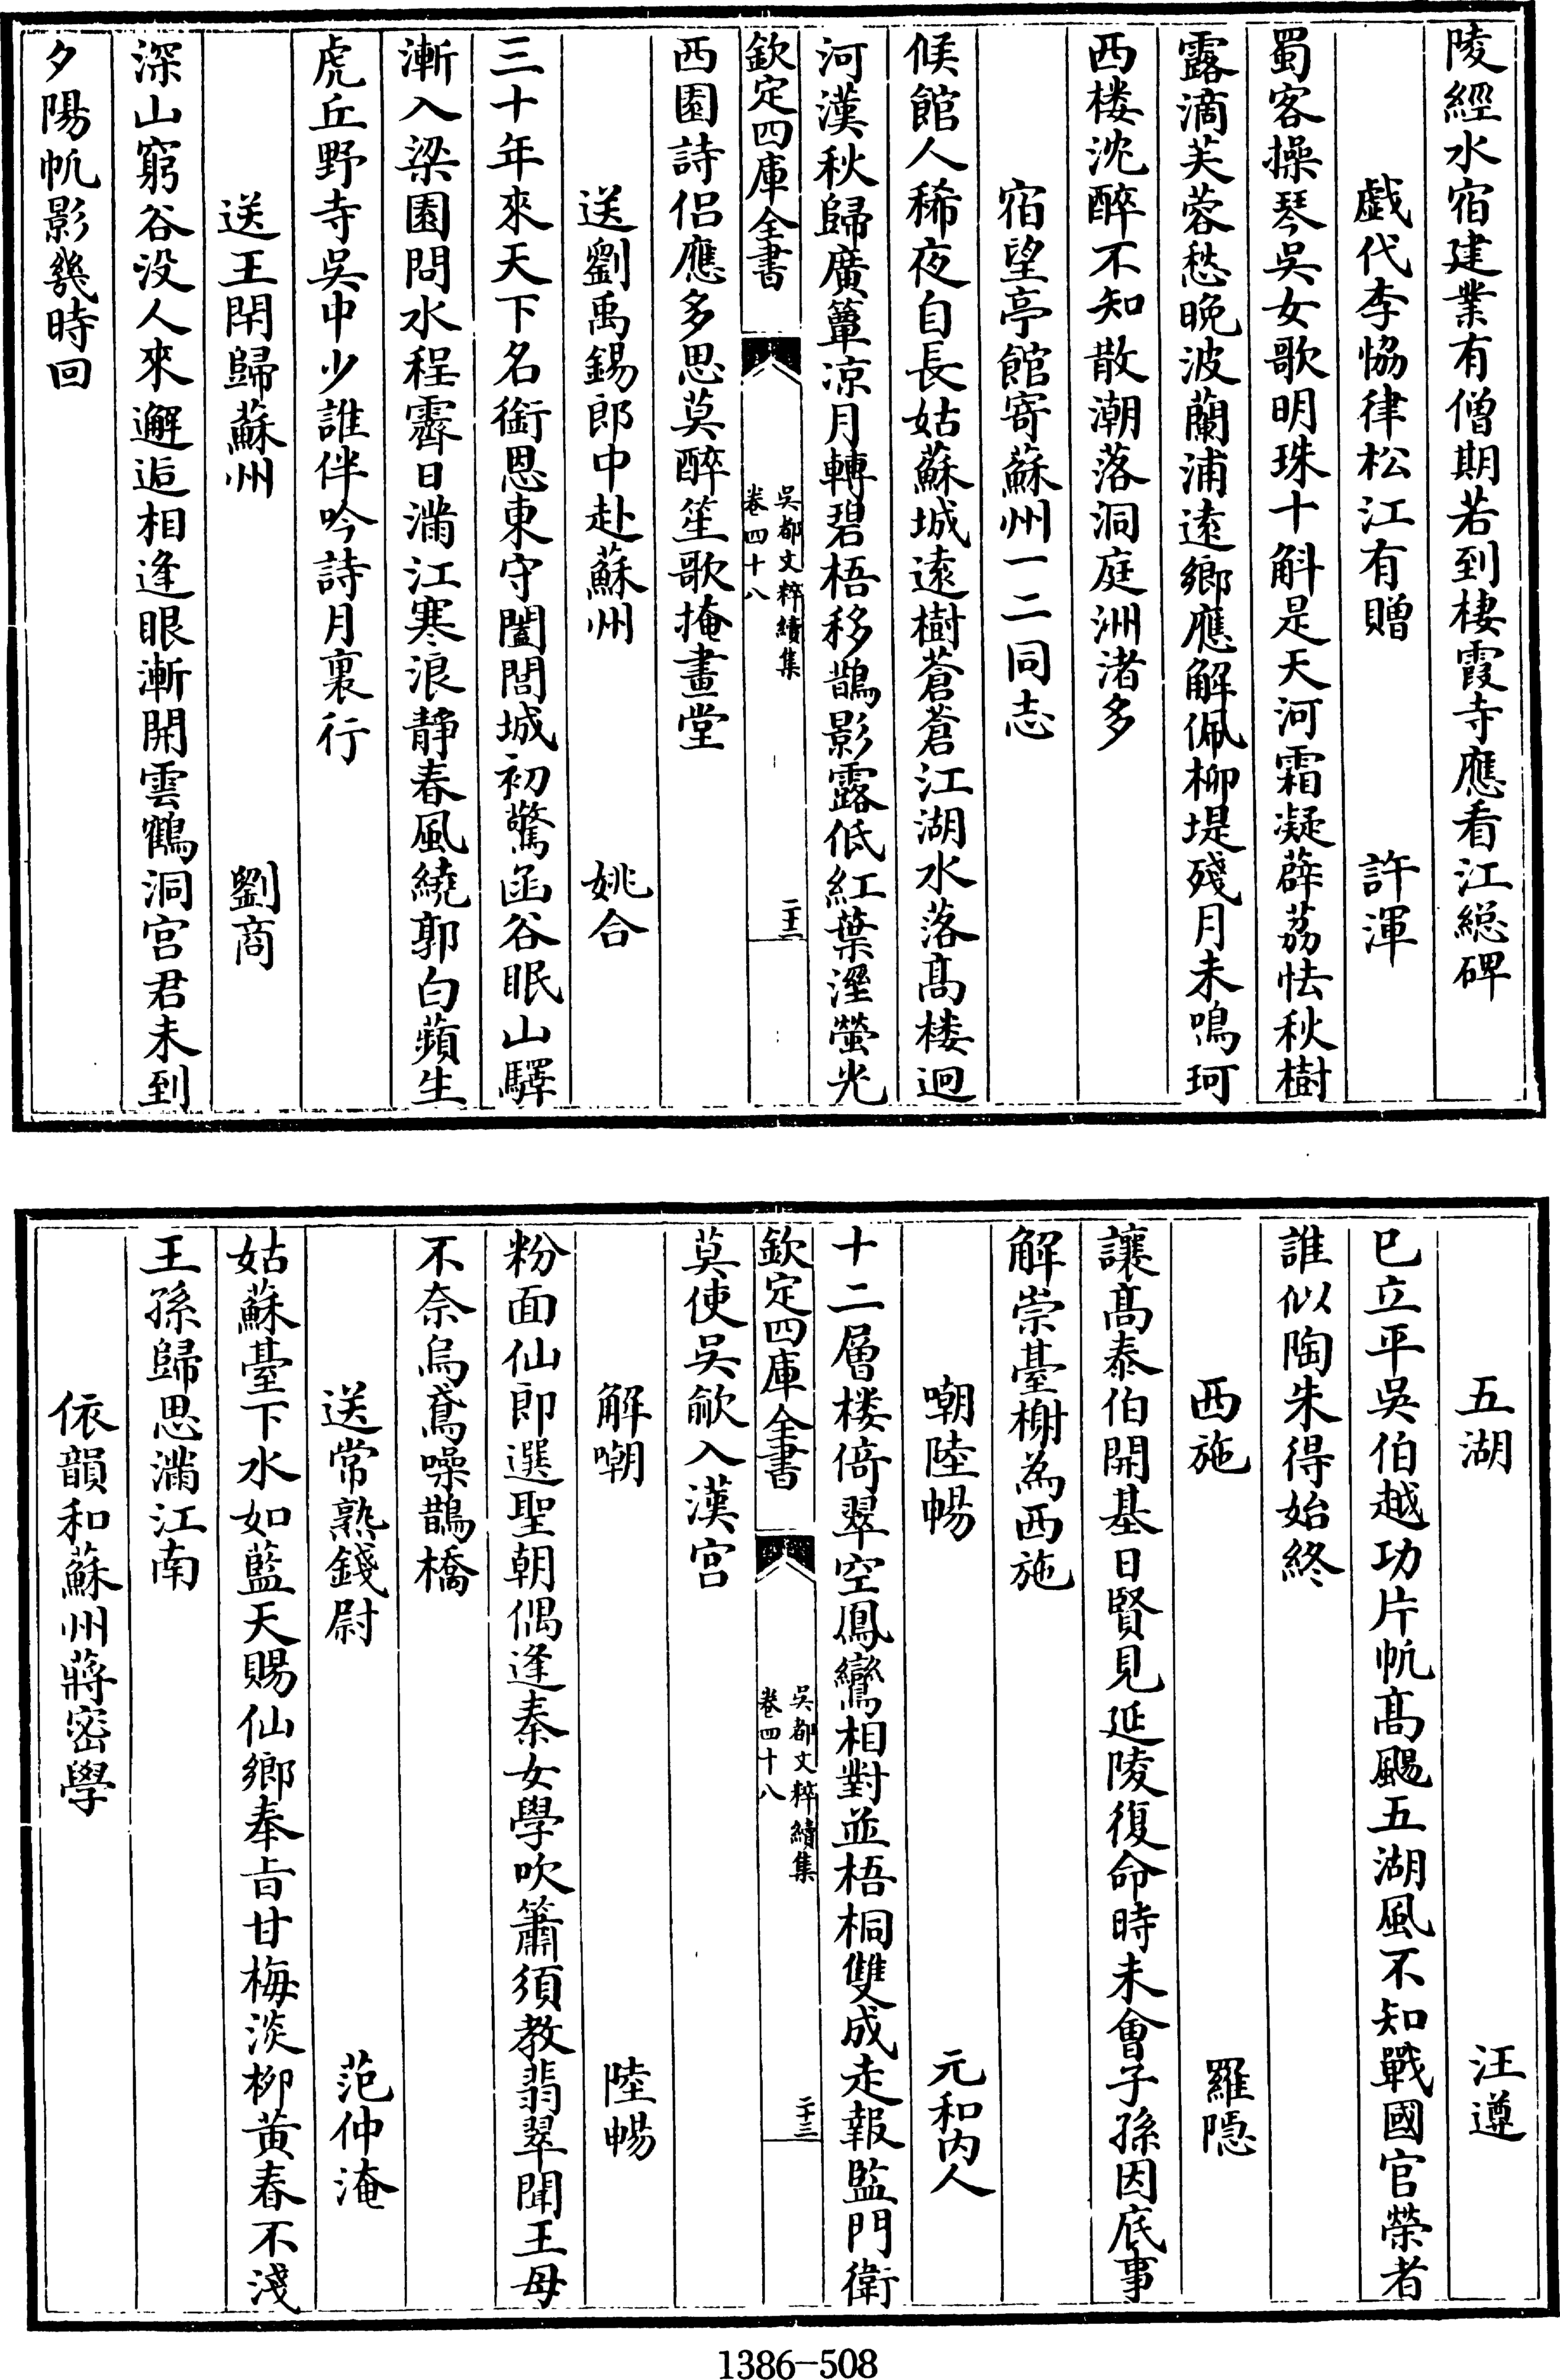 陵經水宿建業有僧期若到棲霞寺應看江總碑
戲代李恊律松江有贈　許渾
蜀客操琴吳女歌明珠十斛是天河霜凝薜荔怯秋樹
露滴芙蓉愁晚波蘭浦逺鄉應解佩柳堤殘月未鳴珂
西楼沈醉不知散潮落洞庭洲渚多
宿望亭館寄蘇州一二同志
候館人稀夜自長姑蘇城逺樹蒼蒼江湖水落髙楼迥
河漢秋歸廣簟凉月轉碧梧移鵲影露低紅葉溼螢光
欽定四庫全書　吳都文粹續集　卷四十八　二十二
西園詩侣應多思莫醉笙歌掩畫堂
送劉禹錫郎中赴蘇州　姚合
三十年來天下名銜恩東守闔閭城初驚函谷眠山驛
漸入梁園問水程霽日滿江寒浪靜春風繞郭白蘋生
虎丘野寺吳中少誰伴吟詩月裏行
送王閑歸蘇州　劉商
深山窮谷没人來邂逅相逢眼漸開雲鶴洞宫君未到
夕陽帆影幾時回
五湖　汪遵
已立平吳伯越功片帆髙颺五湖風不知戰國官榮者
誰似陶朱得始終
西施　羅隱
讓髙泰伯開基日賢見延陵復命時未會子孫因底事
解崇臺榭為西施
嘲陸暢　元和内人
十二層楼倚翠空鳳鸞相對並梧桐雙成走報監門衛
欽定四庫全書　吳都文粹續集　卷四十八　二十三
莫使吳歈入漢宫
解嘲　陸暢
粉面仙郎選聖朝偶逢秦女學吹簫須教翡翠聞王母
不奈烏鳶噪鵲橋
送常熟錢尉　范仲淹
姑蘇臺下水如藍天賜仙鄉奉旨甘梅淡柳黄春不淺
王孫歸思滿江南
依韻和蘇州蔣密學
1386-508